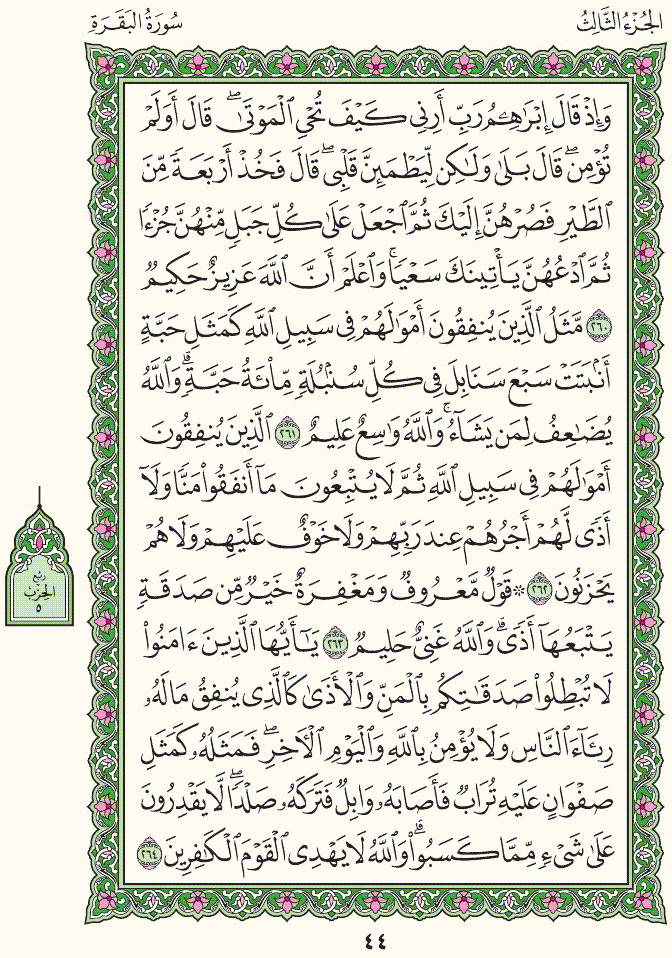 الجُزْءُ الثَّالِثُ
سُورَةُ البَقَرَةِ
وَإِذْ قَالَ إِبْرَٰهِـۧمُ رَبِّ أَرِنِي كَيْفَ تُحْىِ ٱلْمَوْتَىٰۖ قَالَ أَوَلَمْ
تُؤْمِنۖ قَالَ بَلَىٰ وَلَـٰكِن لِّيَطْمَئِنَّ قَلْبِيۖ قَالَ فَخُذْ أَرْبَعَةً مِّنَ
ٱلطَّيْرِ فَصُرْهُنَّ إِلَيْكَ ثُمَّ ٱجْعَلْ عَلَىٰ كُلِّ جَبَلٍ مِّنْهُنَّ جُزْءًا
ثُمَّ ٱدْعُهُنَّ يَأْتِينَكَ سَعْيًاۚ وَٱعْلَمْ أَنَّ ٱللَّهَ عَزِيزٌ حَكِيمٌ
٢٦٠ مَّثَلُ ٱلَّذِينَ يُنفِقُونَ أَمْوَٰلَهُمْ فِي سَبِيلِ ٱللَّهِ كَمَثَلِ حَبَّةٍ
أَنۢبَتَتْ سَبْعَ سَنَابِلَ فِي كُلِّ سُنۢبُلَةٍ مِّا۟ئَةُ حَبَّةٍۗ وَٱللَّهُ
يُضَـٰعِفُ لِمَن يَشَآءُۚ وَٱللَّهُ وَٰسِعٌ عَلِيمٌ ٢٦١ ٱلَّذِينَ يُنفِقُونَ
أَمْوَٰلَهُمْ فِي سَبِيلِ ٱللَّهِ ثُمَّ لَا يُتْبِعُونَ مَآ أَنفَقُوا۟ مَنًّا وَلَآ
أَذًى لَّهُمْ أَجْرُهُمْ عِندَ رَبِّهِمْ وَلَا خَوْفٌ عَلَيْهِمْ وَلَا هُمْ
يَحْزَنُونَ ٢٦٢ ۞ قَوْلٌ مَّعْرُوفٌ وَمَغْفِرَةٌ خَيْرٌ مِّن صَدَقَةٍ
يَتْبَعُهَآ أَذًىۗ وَٱللَّهُ غَنِيٌّ حَلِيمٌ ٢٦٣ يَـٰٓأَيُّهَا ٱلَّذِينَ ءَامَنُوا۟
لَا تُبْطِلُوا۟ صَدَقَـٰتِكُم بِٱلْمَنِّ وَٱلْأَذَىٰ كَٱلَّذِي يُنفِقُ مَالَهُۥ
رِئَآءَ ٱلنَّاسِ وَلَا يُؤْمِنُ بِٱللَّهِ وَٱلْيَوْمِ ٱلْـَٔاخِرِۖ فَمَثَلُهُۥ كَمَثَلِ
صَفْوَانٍ عَلَيْهِ تُرَابٌ فَأَصَابَهُۥ وَابِلٌ فَتَرَكَهُۥ صَلْدًاۖ لَّا يَقْدِرُونَ
عَلَىٰ شَيْءٍ مِّمَّا كَسَبُوا۟ۗ وَٱللَّهُ لَا يَهْدِى ٱلْقَوْمَ ٱلْكَـٰفِرِينَ ٢٦٤
رُبْعُ
الحِزْبِ
٥
٤٤